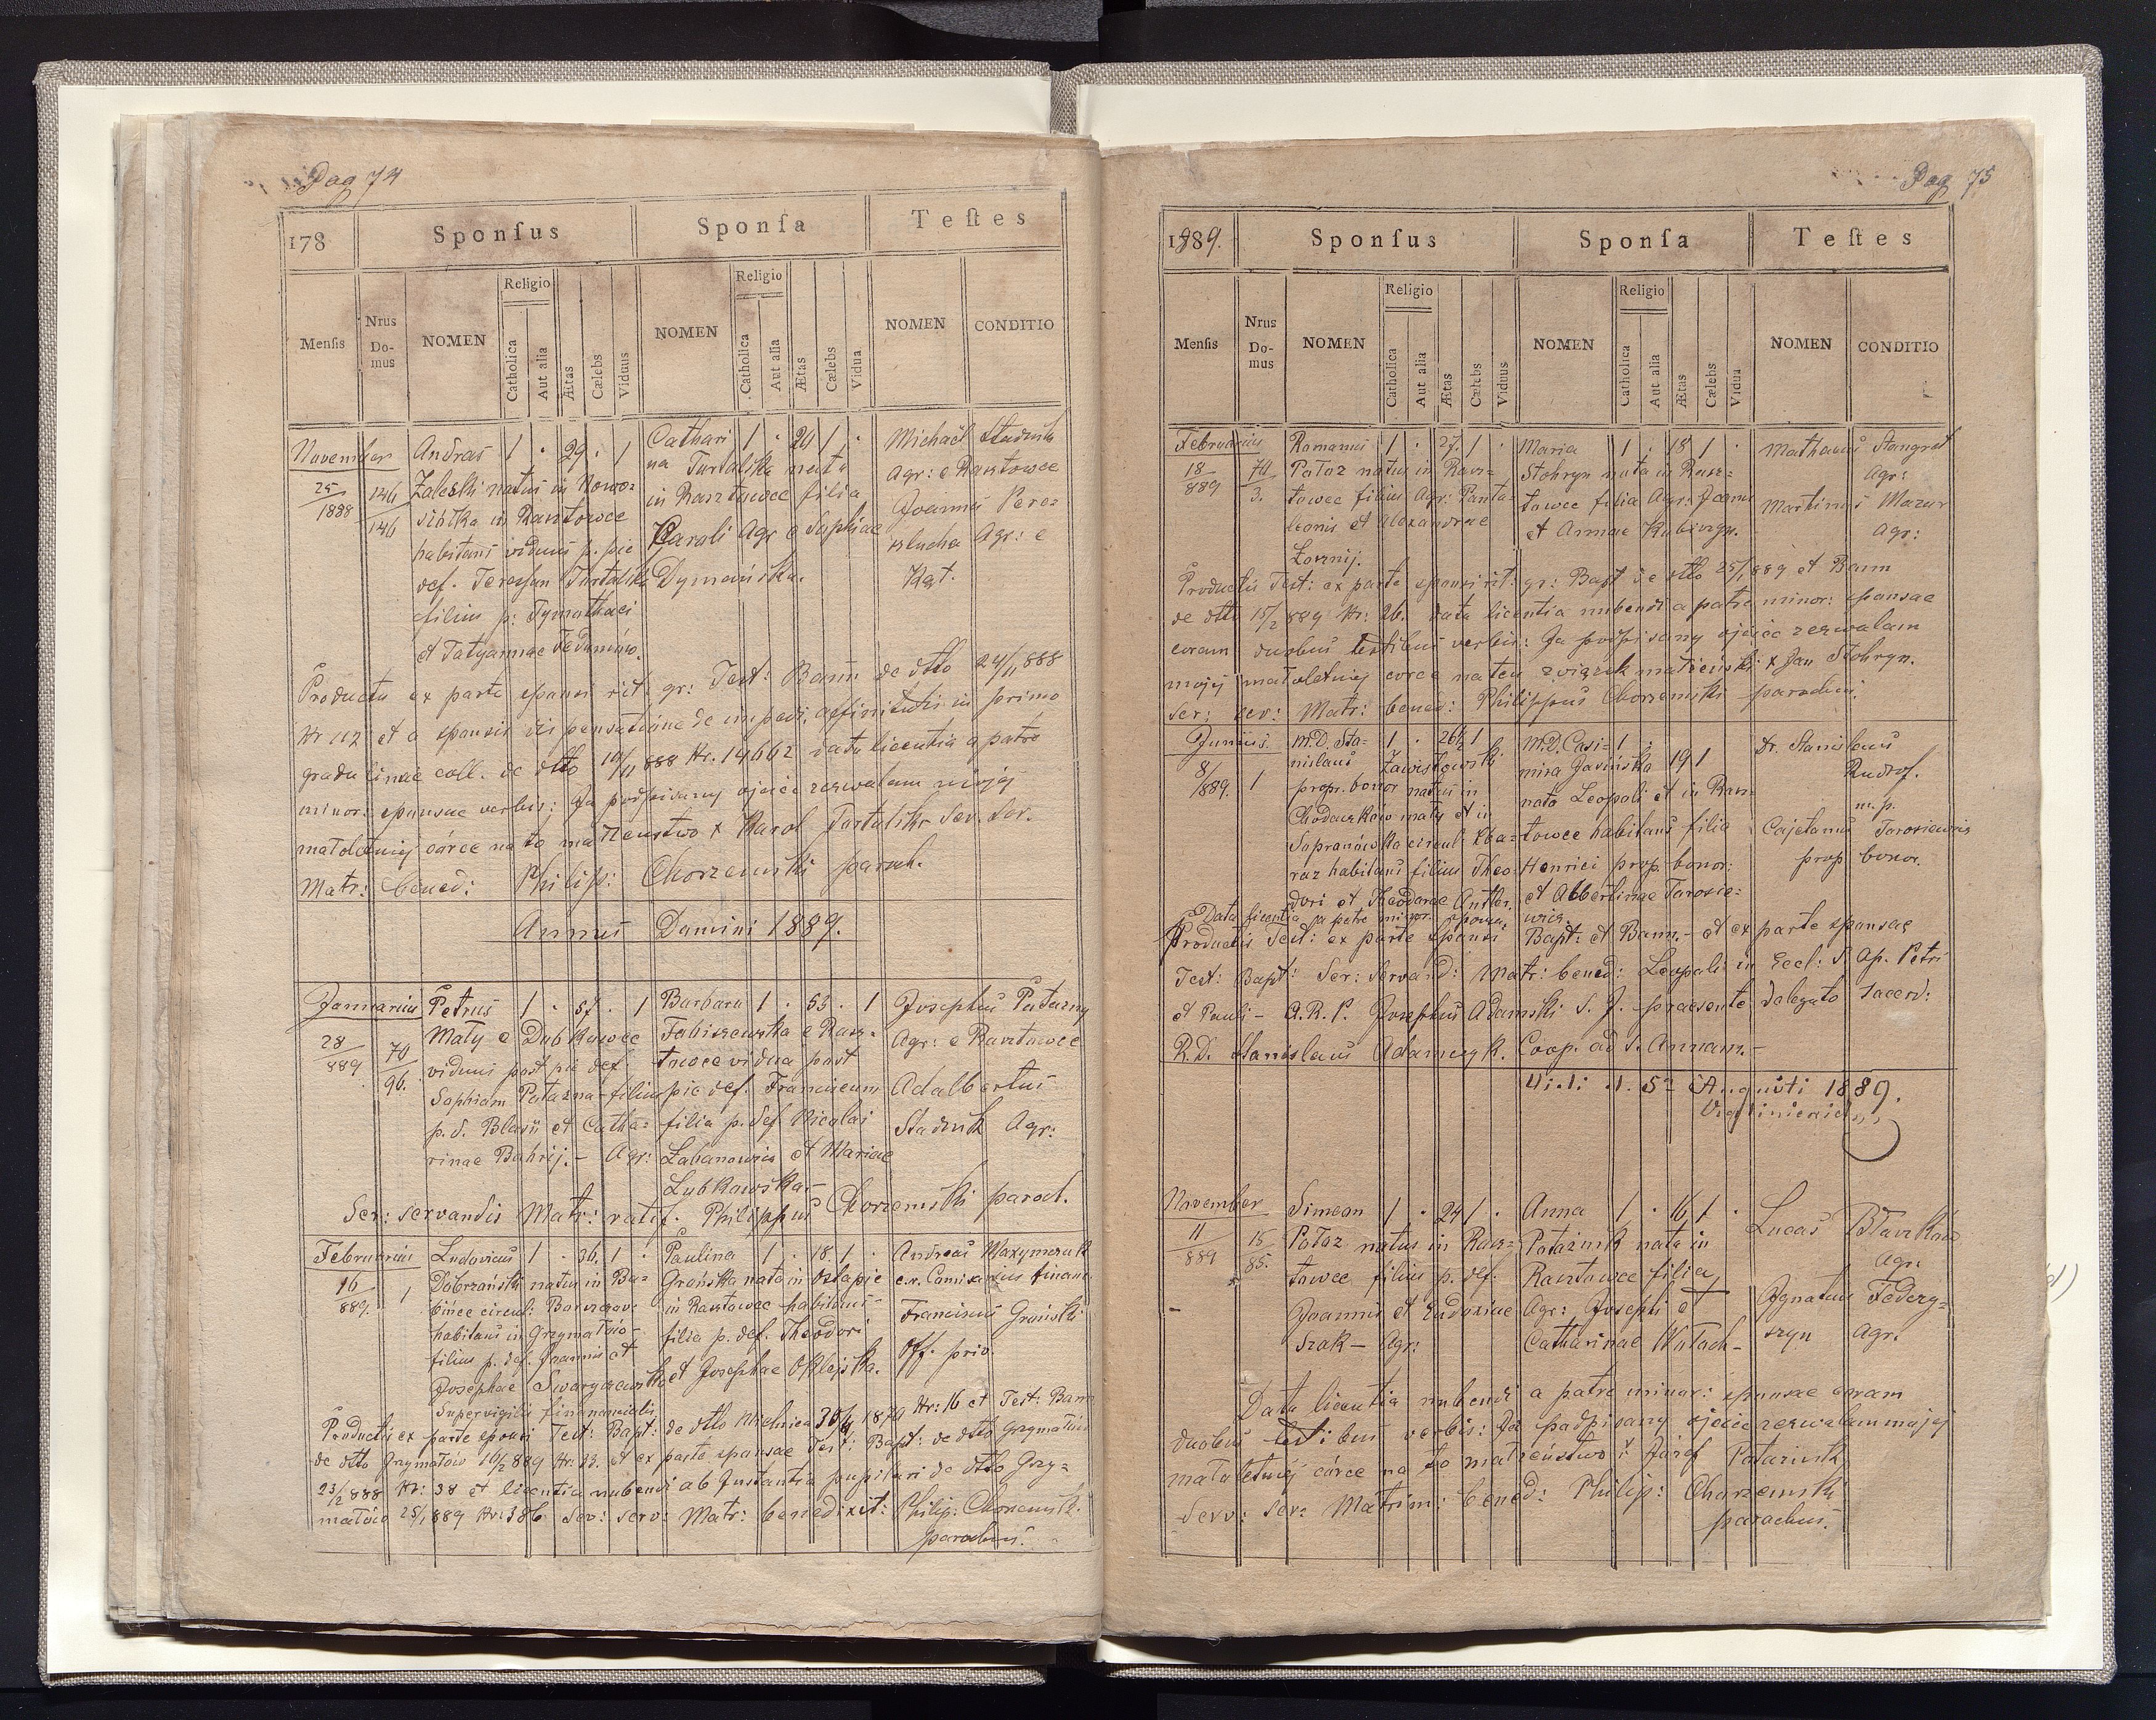 Pag 74
178
Sponſus
Sponſa
Teſtes
Menſis
Nrus Domus
NOMEN
Religio
Catholica
Aut alia
Ætas
Cælebs
Viduus
NOMEN
Religio
Catholica
Aut alia
Ætas
Cælebs
Vidua
NOMEN
CONDITIO
November
25/1888
146
146
Andras 1 · 29 · 1
Zaleski natus in Nowo-
siółka in Rasztowce
habitans viduus p. pie
def. Teressam Turtalska
filius p: Tymothaei
et Tatyannae Feduniów.
Cathari 1 · 20 1 ·
na Turtalska nata
in Rasztowce filia
Caroli Agr e Sophiae
Dymańska.
Michaël Stadnik
Agr: e Rasztowce
Joannes Pere-
pelucha Agr: e
Rszt.
Producta ex parte sponsi rit. gr: Test: Bann de dtto 24/11 888
Nr 117 et a sponsis dispensatione de imped. affinitatis in primo
gradu lineae coll. de dtto 10/11 888 Nr. 14662 data licentia a patre
minor: sponsae verbis: Ja podpisany ojciec zezwalam mojej
małoletniej córce na to małżeństwo × Karol Turtalski Ser. ser.
Matr: bened: Philip: Chorzemski paroch.
Annus Domini 1889.
Januarius
28/889
70
96.
Petrus 1 · 57 · 1
Mały e Dubkowce
viduus post pie def.
Sophiam Potazna filius
p. d. Blasii et Catha-
rinae Bahrij. - Agr:
Barbara 1 · 53 · 1
Fabiszewska e Rasz-
towce vidua post
pie def. Franciscum
filia p. def Nicolai
Labanowicz et Mariae
Lubkowska.-
Josephus Potazny
Agr: e Rasztowce
Adalbertus
Stadnik Agr:
Ser: servandis Matr: ratif. Philippus Chorzemski paroch.
Februarius
16/889.
1
Ludovicus 1 · 36. 1 ·
Dobrzański natus in Ba-
bińce circul: Borszczow:
habitans in Grzymałów -
filius p. def. Joannis et
Josephae Swaryczewska
Supervigilis financialis
Paulina 1 · 18 1 ·
Grońska nata in Ostapie
in Rasztowce habitans
filia p. def. Theodori
et Josephae Oklejska.
Andreas Maxymczuk
c.r. Comisarius financ.
Franciscus Groński
Off. priv.
Productis ex parte sponsi Test: Bapt: de dtto Mielnica 30/4 1879 Nr: 16 et Test: Bann
de dtto Grzymałów 16/2 889 Nr. 13. et ex parte sponsae Test: Bapt: de dtto Grzymałów
23/2 888 Nr: 38 et licentia nubendi ab Instantia pupilari de dtto Grzy-
małów 25/1 889 Nr: 386 Ser: serv: Matr: benedixit: Philip: Chorzemski
parochus.
Pag 75
1889.
Sponſus
Sponſa
Teſtes
Menſis
Nrus Domus
NOMEN
Religio
Catholica
Aut alia
Ætas
Cælebs
Viduus
NOMEN
Religio
Catholica
Aut alia
Ætas
Cælebs
Vidua
NOMEN
CONDITIO
Februarius
18/889
70
3.
Romanus 1 · 27 1 ·
Potoz natus in Rasz-
towce filius Agr: Panta-
leonis et Alexandrae
Łoznij.
Maria 1 · 18 1 ·
Stohryn nata in Rasz-
towce filia Agr: Joannis
et Annae
Mathaeus Stangret
Agr:
Martinus Mazur
Agr:
Productis Test: ex parte sponsi rit: gr: Bapt de dtto 25/1 889 et Bann
de dtto 15/2 889 Nr: 26. data licentia nubendi a patre minor: sponsae
coram duobus testibus verbis: Ja podpisany ojciec zezwalam
mojej małoletniej córce na ten związek małżeński × Jan Stohryn.
Ser: ser: Matr: bened: Philippus Chorzemski parochus.
Junius
8/889.
1
M.D. Sta- 1 · 26½ 1
nislaus Zawistowski
propr. bonor natus in
Chodaczków mały et in
Supranówka circul. Zba-
raz habitans filius Theo-
dori et Theodorae Antler.
M.D. Casi- 1 ·
mira Jasińska 19 1
nata Leopoli et in Rasz-
towce habitans filia
Henrici prop. bonor:
et Albertinae Tarosie-
wicz.
Dr. Stanislaus
Rudrof.
m. p.
Cajetanus Tarosiewicz
prop. bonor.
Data licentia a patre minor. sponsae
Productis Test: ex parte sponsi Bapt: et Bann. - et ex parte sponsae
Test: Bapt: Ser: servand: Matr: bened: Leopoli in Eccl: S. Ap. Petri
et Pauli - A.R.P. Josephus Adamski S. J. praesente delegato sacerd:
R.D. Stanislaus Adamczyk. Coop. ad S. Annam. -
Vidi d. 5° Augusti 1889.
November
11/889
15
85.
Simeon 1 · 24 1 ·
Potoz natus in Rasz-
towce filius p. def.
Joannis et Eudoxiae
Szak - Agr:
Anna 1 · 16 1 ·
Potażnik nata in
Rasztowce filia
Agr: Josephi et
Catharinae Wołach-
Lucas Bławków
Agr:
Ignatius Federy-
szyn Agr.
Data licentia nubendi a patre minor: sponsae coram
duobus testibus verbis: Ja podpisany ojciec zezwalam mojej
małoletniej córce na to małżeństwo: Józef Potażnik
Serv: ser: Matrim: bened: Philip: Chorzemski
parochus.